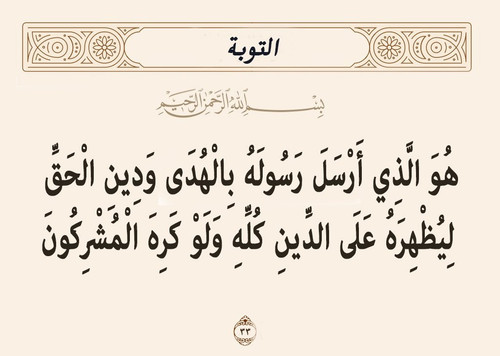 التوبة
بِسْمِ اللهِ الرَّحْمٰنِ الرَّحِيْمِ
هُوَ الَّذِي أَرْسَلَ رَسُولَهُ بِالْهُدَى وَدِينِ الْحَقِّ
لِيُظْهِرَهُ عَلَى الدِّينِ كُلِّهِ وَلَوْ كَرِهَ الْمُشْرِكُونَ
٣٣